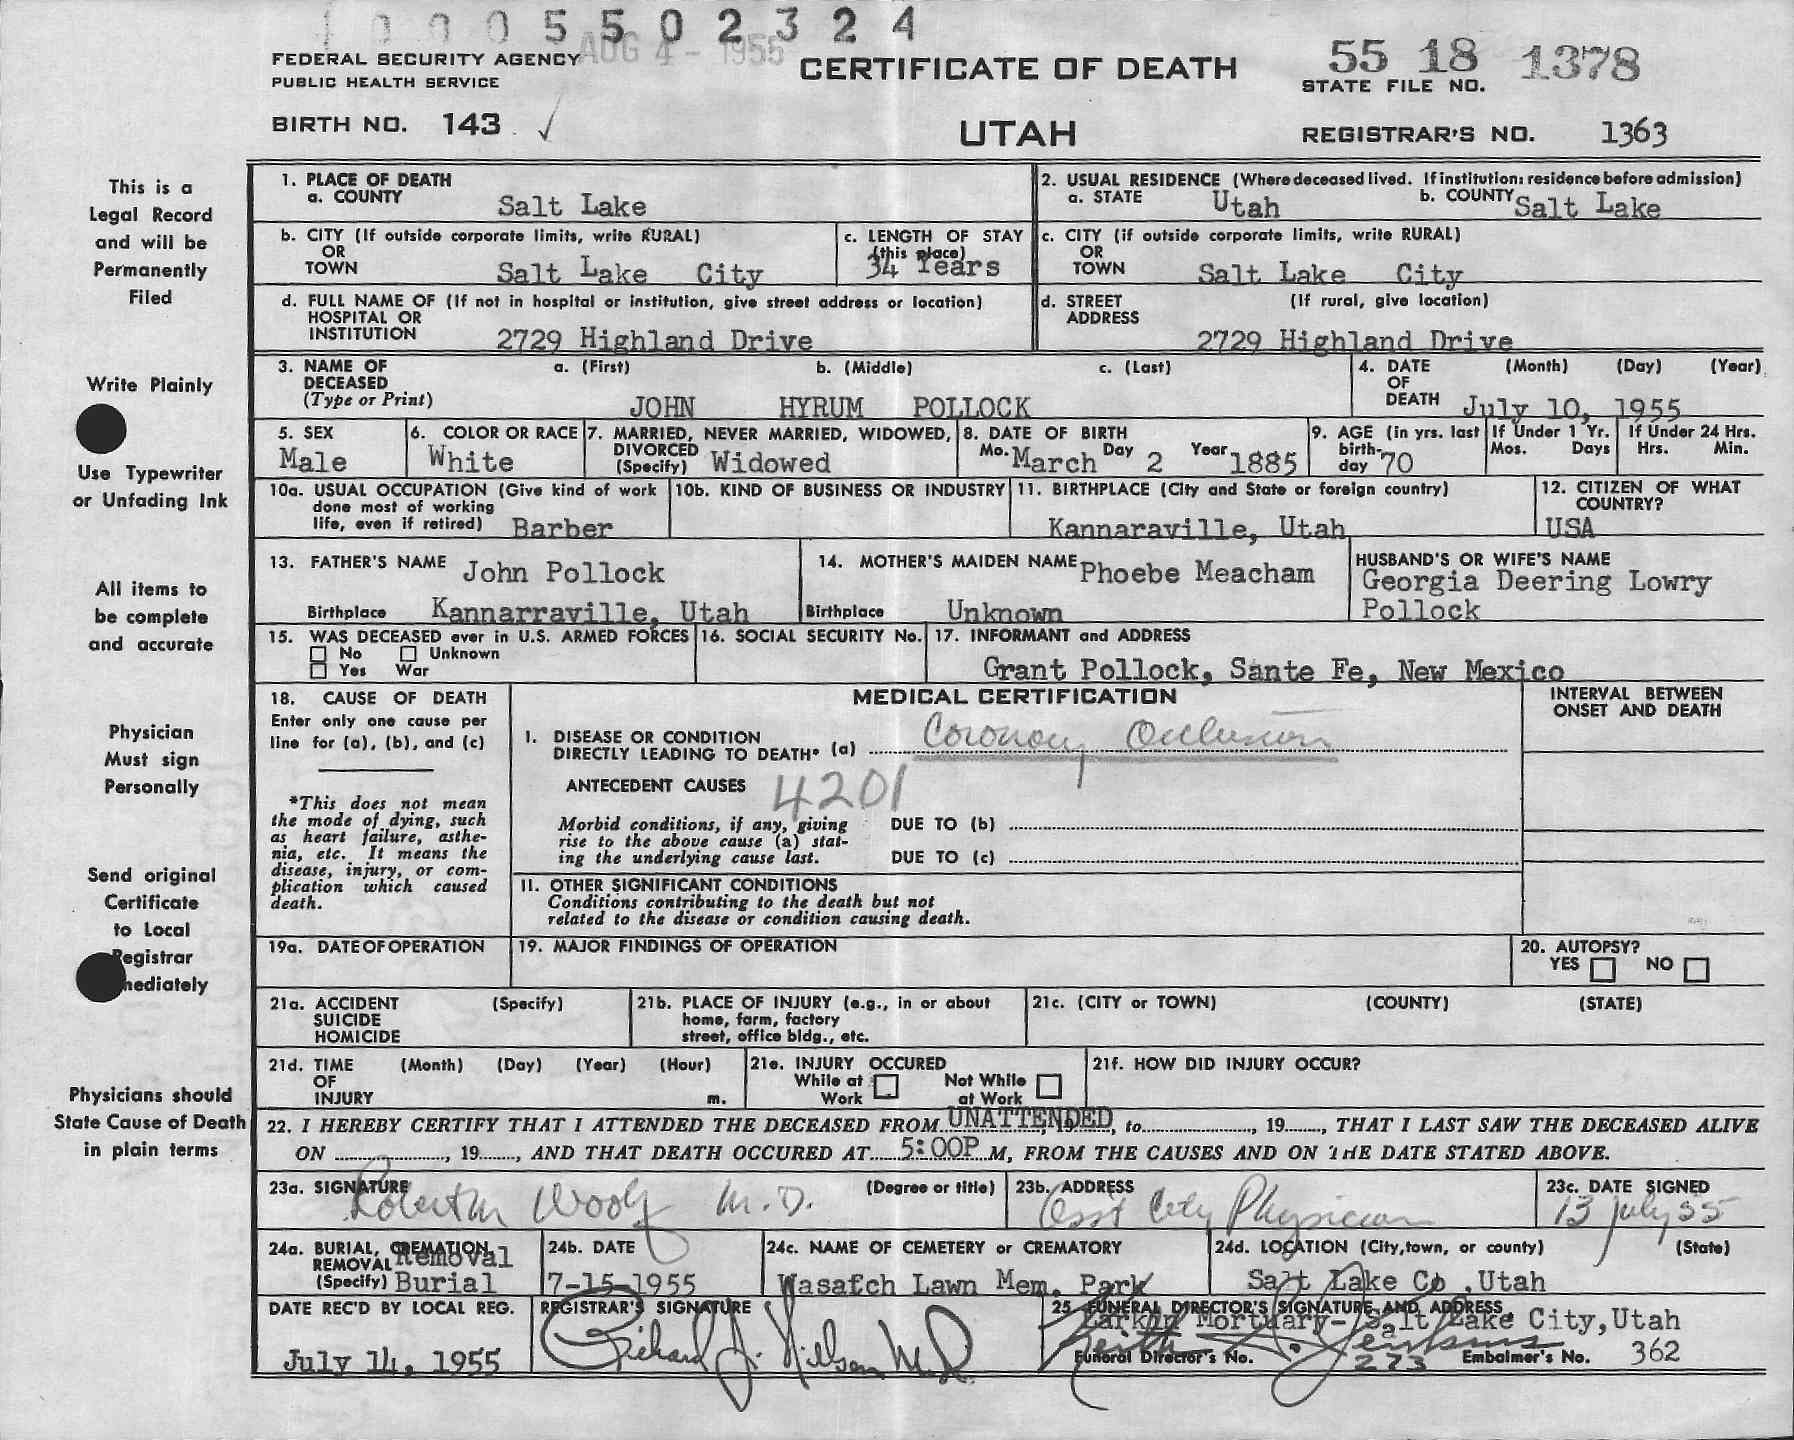 10005502324
AUG 4 - 1955
FEDERAL SECURITY AGENCY
PUBLIC HEALTH SERVICE
CERTIFICATE OF DEATH
55 18 1378
STATE FILE NO.
BIRTH NO. 143
UTAH
REGISTRAR'S NO. 1363
This is a
Legal Record
and will be
Permanently
Filed
Write Plainly
Use Typewriter
or Unfading Ink
All items to
be complete
and accurate
Physician
Must sign
Personally
Send original
Certificate
to Local
Registrar
mediately
Physicians should
State Cause of Death
in plain terms
1. PLACE OF DEATH
a. COUNTY Salt Lake
2. USUAL RESIDENCE (Where deceased lived. If institution: residence before admission)
a. STATE Utah b. COUNTY Salt Lake
b. CITY (If outside corporate limits, write RURAL)
OR
TOWN Salt Lake City
c. LENGTH OF STAY
(this place)
34 Years
c. CITY (if outside corporate limits, write RURAL)
OR
TOWN Salt Lake City
d. FULL NAME OF (If not in hospital or institution, give street address or location)
HOSPITAL OR
INSTITUTION 2729 Highland Drive
d. STREET (If rural, give location)
ADDRESS
2729 Highland Drive
3. NAME OF a. (First) b. (Middle) c. (Last)
DECEASED
(Type or Print) JOHN HYRUM POLLOCK
4. DATE (Month) (Day) (Year)
OF
DEATH July 10, 1955
5. SEX
Male
6. COLOR OR RACE
White
7. MARRIED, NEVER MARRIED, WIDOWED,
DIVORCED
(Specify) Widowed
8. DATE OF BIRTH
Mo. March Day 2 Year 1885
9. AGE (in yrs. last
birth-
day 70
If Under 1 Yr.
Mos. Days
If Under 24 Hrs.
Hrs. Min.
10a. USUAL OCCUPATION (Give kind of work
done most of working
life, even if retired) Barber
10b. KIND OF BUSINESS OR INDUSTRY
11. BIRTHPLACE (City and State or foreign country)
Kannaraville, Utah
12. CITIZEN OF WHAT
COUNTRY?
USA
13. FATHER'S NAME John Pollock
Birthplace Kannarraville, Utah
14. MOTHER'S MAIDEN NAME Phoebe Meacham
Birthplace Unknown
HUSBAND'S OR WIFE'S NAME
Georgia Deering Lowry
Pollock
15. WAS DECEASED ever in U.S. ARMED FORCES
No Unknown
Yes War
16. SOCIAL SECURITY No.
17. INFORMANT and ADDRESS
Grant Pollock, Sante Fe, New Mexico
18. CAUSE OF DEATH
Enter only one cause per
line for (a), (b), and (c)
*This does not mean
the mode of dying, such
as heart failure, asthe-
nia, etc. It means the
disease, injury, or com-
plication which caused
death.
MEDICAL CERTIFICATION
I. DISEASE OR CONDITION
DIRECTLY LEADING TO DEATH* (a) Coronary Occlusion
ANTECEDENT CAUSES 4201
Morbid conditions, if any, giving
rise to the above cause (a) stat-
ing the underlying cause last.
DUE TO (b)
DUE TO (c)
II. OTHER SIGNIFICANT CONDITIONS
Conditions contributing to the death but not
related to the disease or condition causing death.
INTERVAL BETWEEN
ONSET AND DEATH
19a. DATE OF OPERATION
19. MAJOR FINDINGS OF OPERATION
20. AUTOPSY?
YES NO
21a. ACCIDENT (Specify)
SUICIDE
HOMICIDE
21b. PLACE OF INJURY (e.g., in or about
home, farm, factory
street, office bldg., etc.
21c. (CITY or TOWN) (COUNTY) (STATE)
21d. TIME (Month) (Day) (Year) (Hour)
OF
INJURY m.
21e. INJURY OCCURED
While at Not While
Work at Work
21f. HOW DID INJURY OCCUR?
22. I HEREBY CERTIFY THAT I ATTENDED THE DECEASED FROM UNATTENDED, to , 19 , THAT I LAST SAW THE DECEASED ALIVE
ON , 19 , AND THAT DEATH OCCURED AT 5:00P M, FROM THE CAUSES AND ON THE DATE STATED ABOVE.
23a. SIGNATURE (Degree or title)
M.D.
23b. ADDRESS
Asst City Physician
23c. DATE SIGNED
13 July 55
24a. BURIAL, CREMATION,
REMOVAL Removal
(Specify) Burial
24b. DATE
7-15-1955
24c. NAME OF CEMETERY or CREMATORY
Wasatch Lawn Mem. Park
24d. LOCATION (City, town, or county) (State)
Salt Lake Co , Utah
DATE REC'D BY LOCAL REG.
July 14, 1955
REGISTRAR'S SIGNATURE
Richard
M.D.
25. FUNERAL DIRECTOR'S SIGNATURE AND ADDRESS
Larkin Mortuary- Salt Lake City, Utah
Keith
Funeral Director's No. 273 Embalmer's No. 362